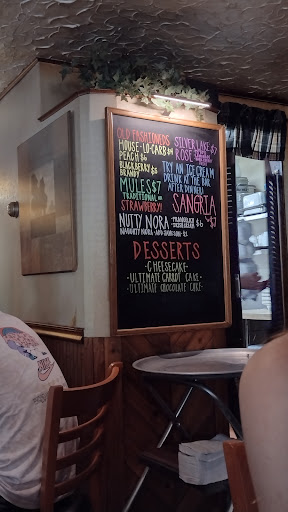 OLD FASHIONEDS
HOUSE-LO-CARB $4
PEACH $6
BLACKBERRY $5
BRANDY
MULES $7
TRADITIONAL OR
STRAWBERRY!
NUTTY NORA
$6
SILVER LAKE $7
ROSE
TRY AN ICE CREAM
DRINK AT THE BAR
AFTER DINNER!
SANGRIA
$7
DESSERTS
-CHEESECAKE-
-ULTIMATE CARROT CAKE-
-ULTIMATE CHOCOLATE CAKE-